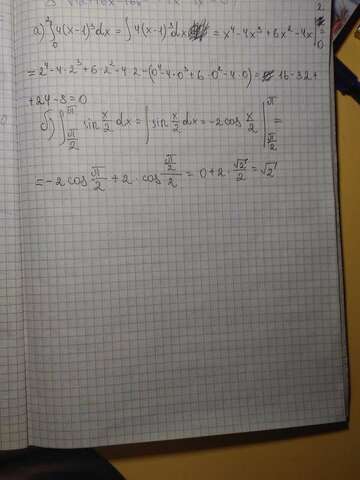 а) ²∫₀ 4(x-1)³dx = ∫4(x-1)³dx = x⁴-4x³+6x²-4x |₀²
=2⁴-4·2³+6·2²-4·2-(0⁴-4·0³+6·0²-4·0)= 16-32+
+24-8=0
б) ∫_{π/2}^{π} sin x/2 dx = ∫ sin x/2 dx = -2cos x/2 |_{π/2}^{π} =
= -2 cos π/2 + 2·cos (π/2)/2 = 0+2·√2/2 = √2